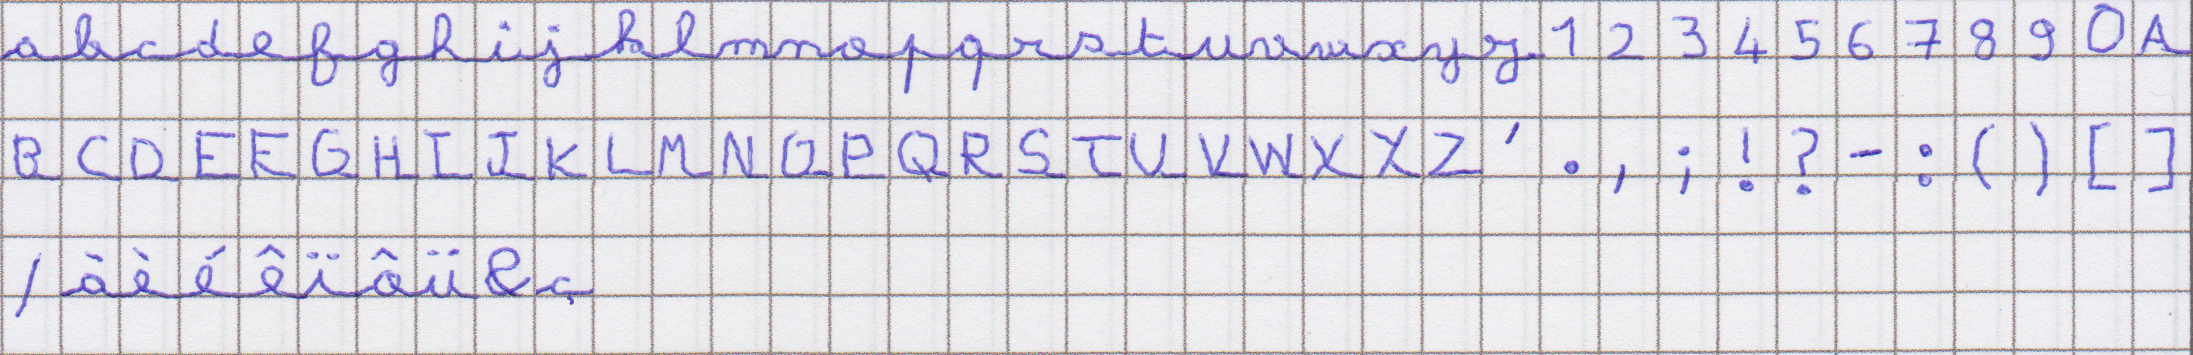 abcdefghijklmnopqrstuvwxyz1234567890A
BCDEFGHIJKLMNOPQRSTUVWXYZ'.,;!?-:()[]
/àèéêïôü&ç